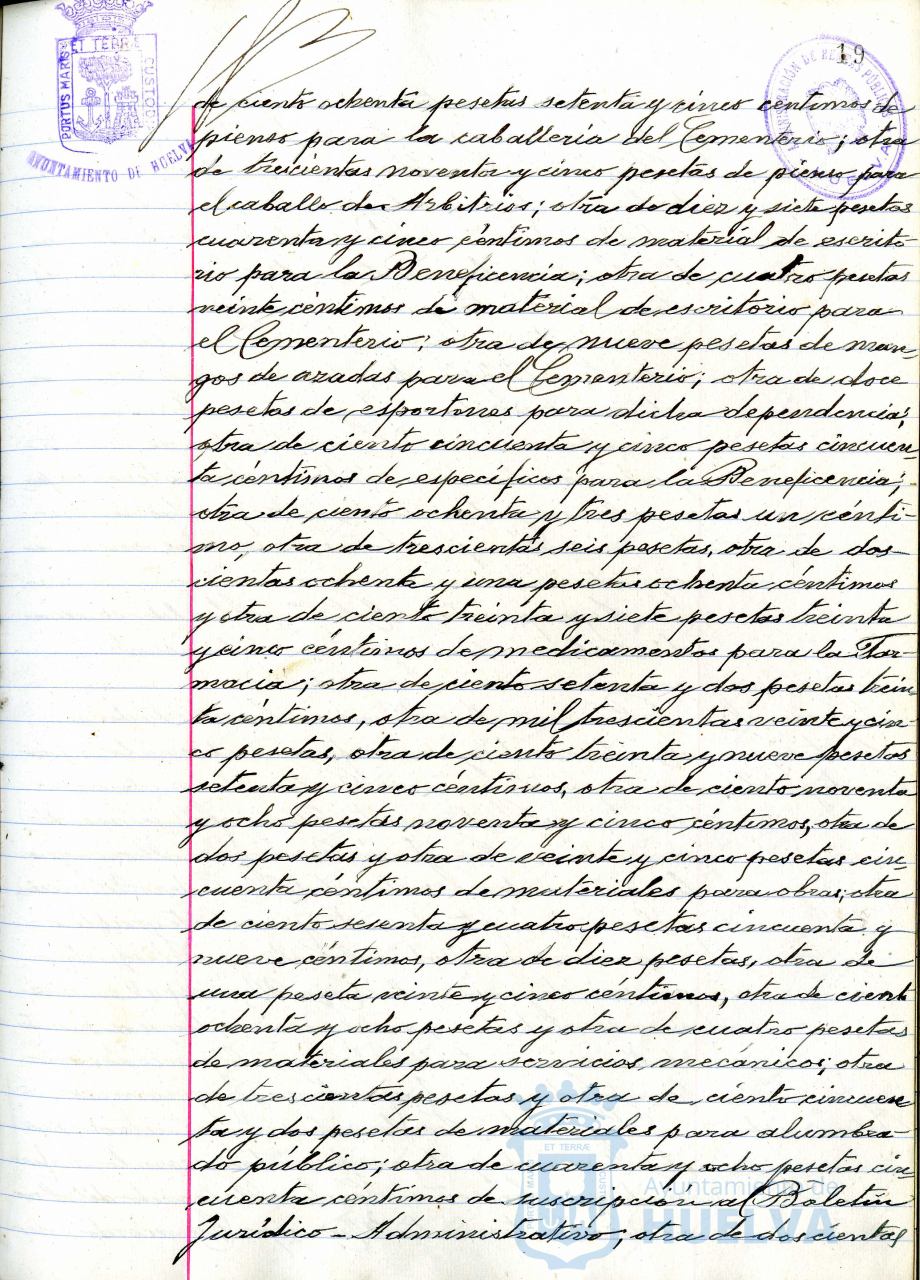 19
PORTUS MARIS ET TERRÆ CUSTODIA
AYUNTAMIENTO DE HUELVA
de ciento ochenta pesetas setenta y cinco céntimos de
pienso para la caballeria del Cementerio; otra
de trescientas noventa y cinco pesetas de pienso para
el caballo de Arbitrios; otra de diez y siete pesetas
cuarenta y cinco céntimos de material de escrito-
rio para la Beneficencia; otra de cuatro pesetas
veinte céntimos de material de escritorio para
el Cementerio; otra de nueve pesetas de man-
gos de azadas para el Cementerio; otra de doce
pesetas de esportones para dicha dependencia;
otra de ciento cincuenta y cinco pesetas cincuen-
ta céntimos de específicos para la Beneficencia;
otra de ciento ochenta y tres pesetas un cénti-
mo, otra de trescientas seis pesetas, otra de dos-
cientas ochenta y una pesetas ochenta céntimos
y otra de ciento treinta y siete pesetas treinta
y cinco céntimos de medicamentos para la Far-
macia; otra de ciento setenta y dos pesetas trein-
ta céntimos, otra de mil trescientas veinte y cin-
co pesetas, otra de ciento treinta y nueve pesetas
setenta y cinco céntimos, otra de ciento noventa
y ocho pesetas noventa y cinco céntimos, otra de
dos pesetas y otra de veinte y cinco pesetas cin-
cuenta céntimos de materiales para obras; otra
de ciento sesenta y cuatro pesetas cincuenta y
nueve céntimos, otra de diez pesetas, otra de
una peseta veinte y cinco céntimos, otra de ciento
ochenta y ocho pesetas y otra de cuatro pesetas
de materiales para servicios mecánicos; otra
de trescientas pesetas y otra de ciento cincuen-
ta y dos pesetas de materiales para alumbra-
do público; otra de cuarenta y ocho pesetas cin-
cuenta céntimos de suscripción al Boletín
Jurídico-Administrativo; otra de doscientas
Ayuntamiento de
HUELVA